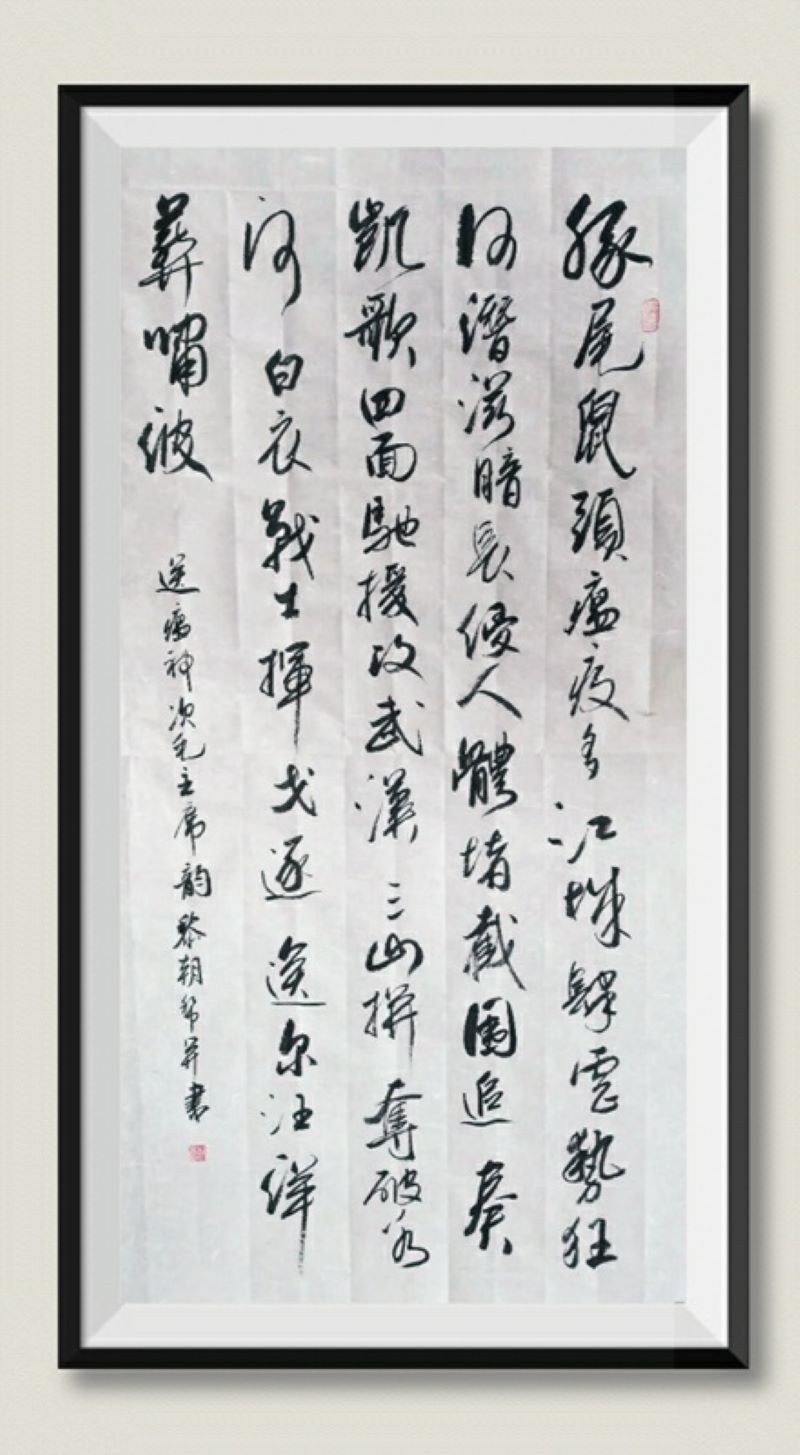 豚尾鼠頭瘟疫多江城肆虐勢狂
何潛滋暗長侵人體堵截圍追奏
凱歌四面馳援攻武漢三山拼奪破
河白衣戰士揮戈逐送尔汪洋
葬嘯波
送瘟神次毛主席韵黎朝并書